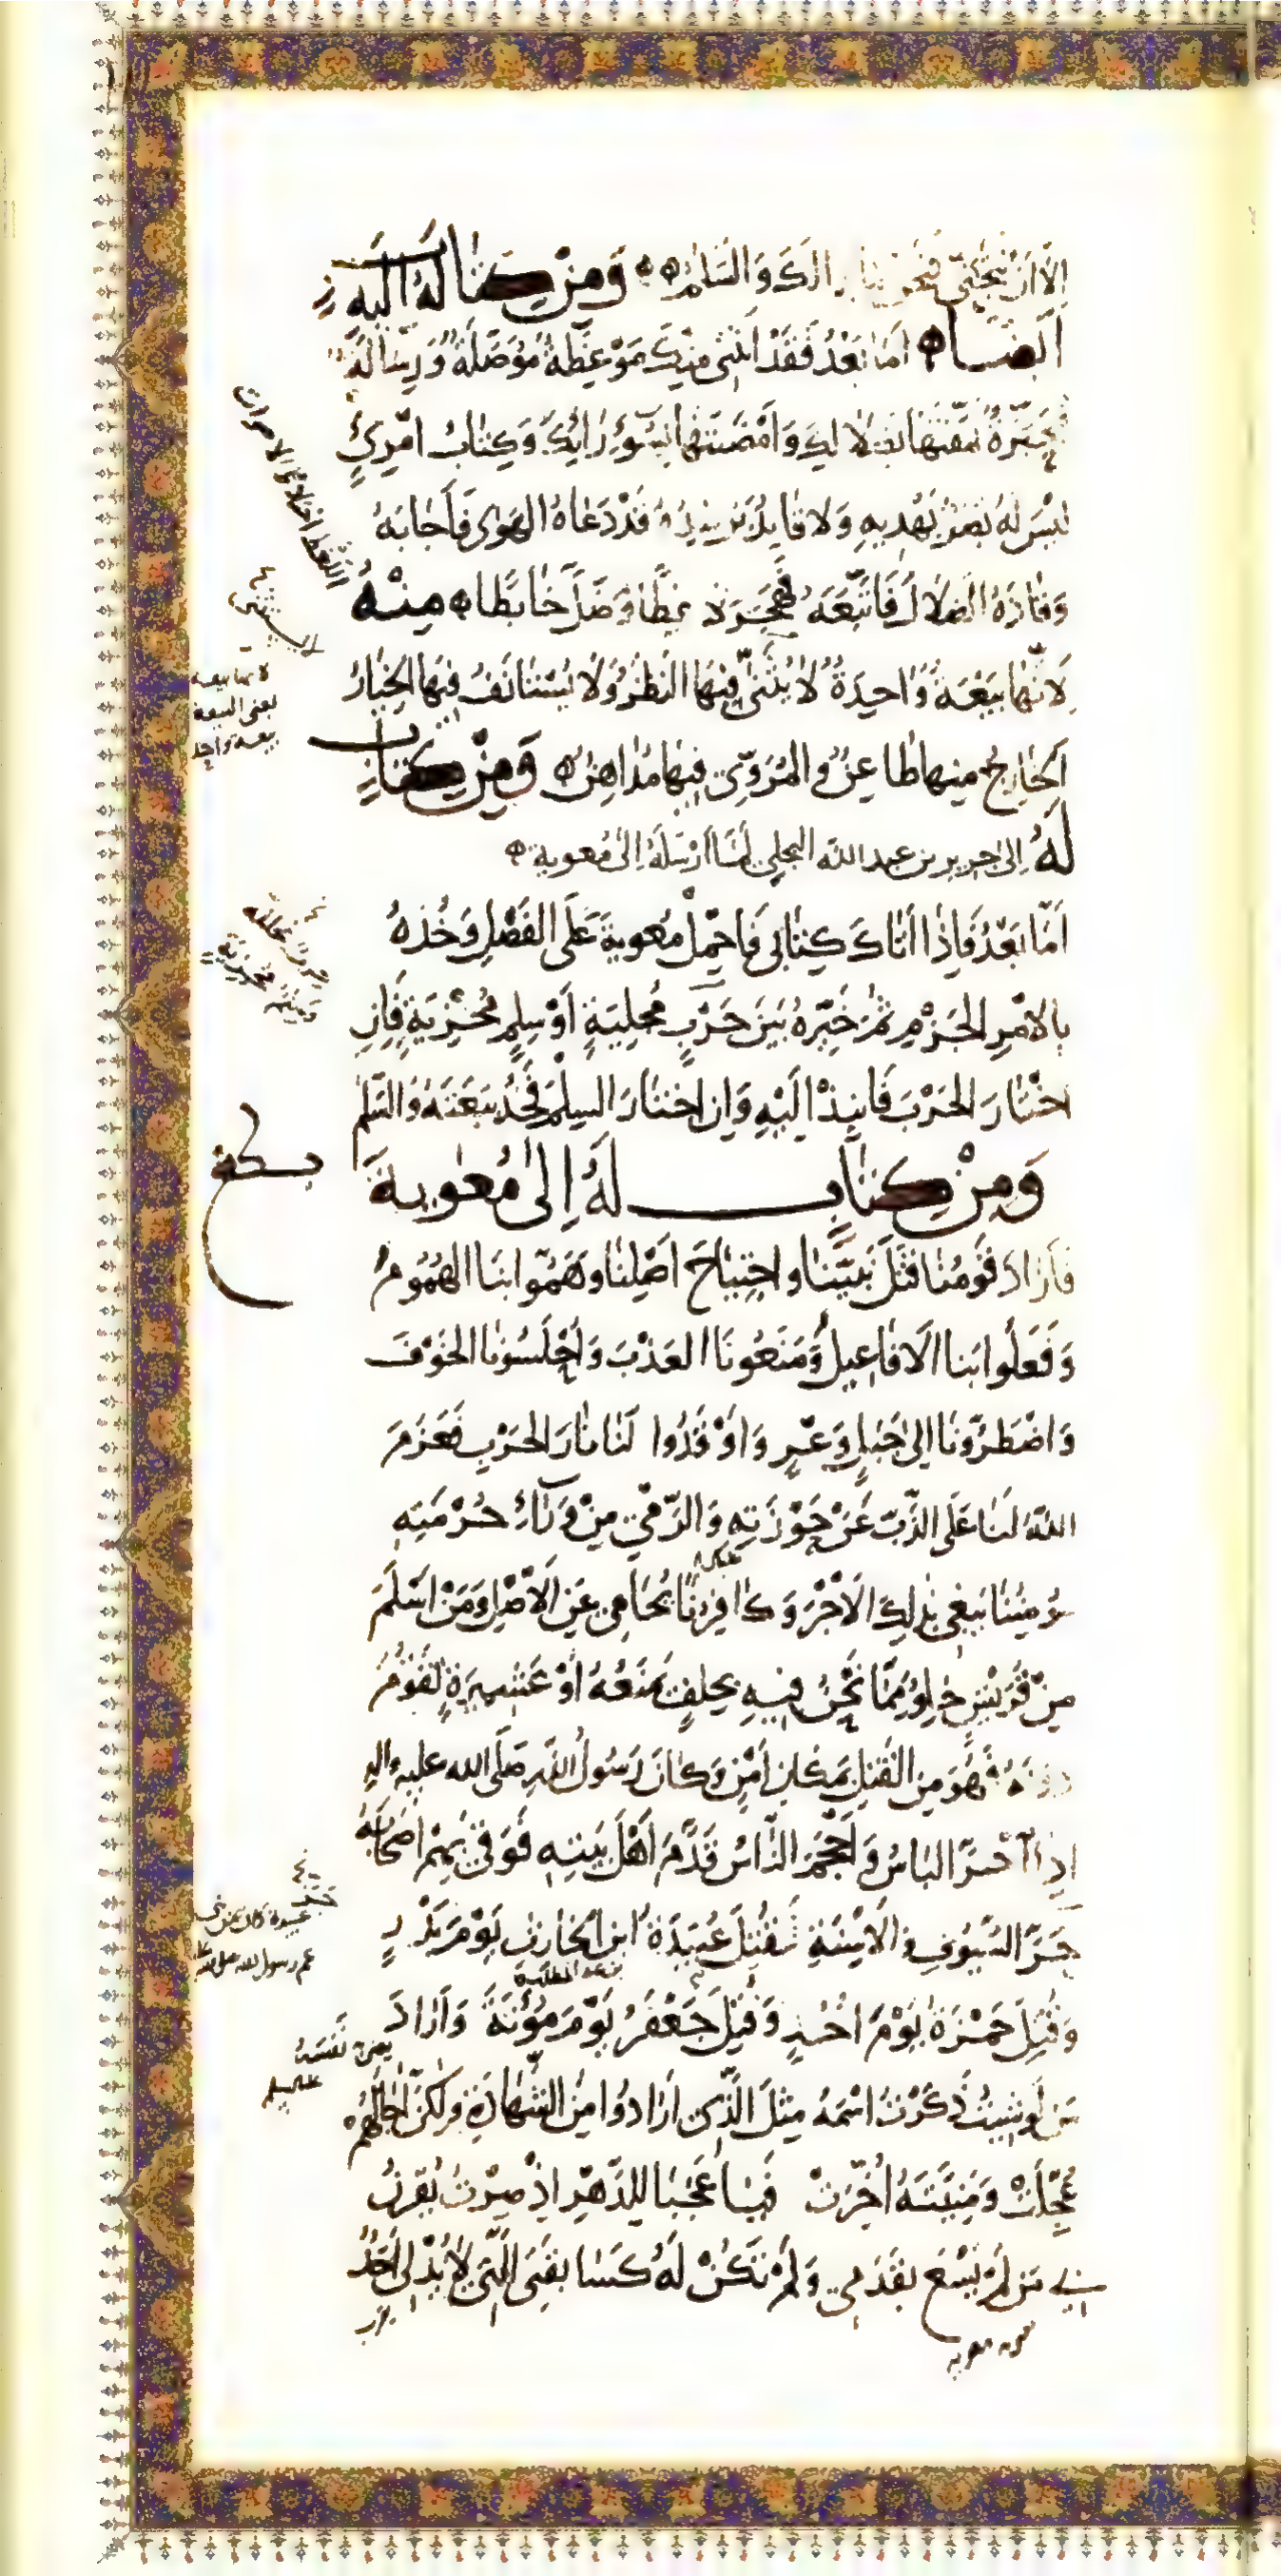 إِلَّا أَنْ تَجْتَنِيَ ذَلِكَ وَالسَّلَمُ وَمِنْ كِتَابٍ لَهُ اِلَيْهِ
اَيْضًا أَمَّا بَعْدُ فَقَدْ أَتَتْنِي مِنْكَ مَوْعِظَةٌ مُوَصَّلَةٌ وَرِسَالَةٌ
مُحَبَّرَةٌ نَمَّقْتَهَا بِضَلَالِكَ وَأَمْضَيْتَهَا بِسُوءِ رَايِكَ وَكِتَابُ امْرِئٍ
لَيْسَ لَهُ بَصَرٌ يَهْدِيهِ وَلَا قَايِدٌ يُرْشِدُهُ قَدْ دَعَاهُ الْهَوَى فَأَجَابَهُ
وَقَادَهُ الضَّلَالُ فَاتَّبَعَهُ فَهَجَرَ لَاغِطًا وَضَلَّ خَابِطًا مِنْهُ
لِاَنَّهَا بَيْعَةٌ وَاحِدَةٌ لَا يُثَنَّى فِيهَا النَّظَرُ وَلَا يُسْتَانَفُ فِيهَا الْخِيَارُ
اَلْخَارِجُ مِنْهَا طَاعِنٌ وَالْمُرَوِّي فِيهَا مُدَاهِنٌ وَمِنْ كِتَابٍ
لَهُ اِلَى جرير بن عبد الله البجلي لَمَّا اَرْسَلَهُ اِلَى مُعوية
اَمَّا بَعْدُ فَاِذَا اَتَاكَ كِتَابِي فَاحْمِلْ مُعوية عَلَى الْفَصْلِ وَخُذْهُ
بِالْاَمْرِ الْجَزْمِ ثُمَّ خَيِّرْهُ بَيْنَ حَرْبٍ مُجْلِيَةٍ اَوْ سِلْمٍ مُخْزِيَةٍ فَاِنِ
اخْتَارَ الْحَرْبَ فَانْبِذْ اِلَيْهِ وَاِنِ اخْتَارَ السِّلْمَ فَخُذْ بَيْعَتَهُ وَالسَّلَمُ
وَمِنْ كِتَابٍ لَهُ اِلَى مُعَوِيَةَ
فَاَرَادَ قَوْمُنَا قَتْلَ نَبِيِّنَا وَاجْتِيَاحَ اَصْلِنَا وَهَمُّوا بِنَا الْهُمُومَ
وَفَعَلُوا بِنَا الْاَفَاعِيلَ وَمَنَعُونَا الْعَذْبَ وَاَحْلَسُونَا الْخَوْفَ
وَاضْطَرُّونَا اِلَى جَبَلٍ وَعْرٍ وَاَوْقَدُوا لَنَا نَارَ الْحَرْبِ فَعَزَمَ
اللهُ لَنَا عَلَى الذَّبِّ عَنْ حَوْزَتِهِ وَالرَّمْيِ مِنْ وَرَاءِ حُرْمَتِهِ
مُؤْمِنُنَا يَبْغِي بِذَلِكَ الْاَجْرَ وَكَافِرُنَا يُحَامِي عَنِ الْاَصْلِ وَمَنْ اَسْلَمَ
مِنْ قُرَيْشٍ خِلْوٌ مِمَّا نَحْنُ فِيهِ بِحِلْفٍ يَمْنَعُهُ اَوْ عَشِيرَةٍ تَقُومُ
دُونَهُ فَهُوَ مِنَ الْقَتْلِ بِمَكَانِ اَمْنٍ وَكَانَ رَسُولُ اللهِ صَلَّى الله عليه واله
اِذَا احْمَرَّ الْبَاسُ وَاَحْجَمَ النَّاسُ قَدَّمَ اَهْلَ بَيْتِهِ فَوَقَى بِهِمْ اَصْحَابَهُ
حَرَّ السُّيُوفِ وَالْاَسِنَّةِ فَقُتِلَ عُبَيْدَةُ ابْنُ الْحَارِثِ يَوْمَ بَدْرٍ
بن عبد المطلب
وَقُتِلَ حَمْزَةُ يَوْمَ اُحُدٍ وَقُتِلَ جَعْفَرٌ يَوْمَ مُؤْتَةَ وَاَرَادَ
مَنْ لَوْ شِيتُ ذَكَرْتُ اسْمَهُ مِثْلَ الَّذِي اَرَادُوا مِنَ الشَّهَادَةِ وَلَكِنْ اٰجَالُهُمْ
عُجِّلَتْ وَمَنِيَّتُهُ اُخِّرَتْ فَيَا عَجَبًا لِلدَّهْرِ اِذْ صِرْتُ يُقْرَنُ
بِي مَنْ لَمْ يَسْعَ بِقَدَمِي وَلَمْ تَكُنْ لَهُ كَسَابِقَتِي الَّتِي لَا يُدْلِي اَحَدٌ
اللغط اختلاط الاصوات
يعني البيعة
بيعة واحدة
عم رسول الله صلى الله عليه
يعني نَفْسَهُ
عليه السلم